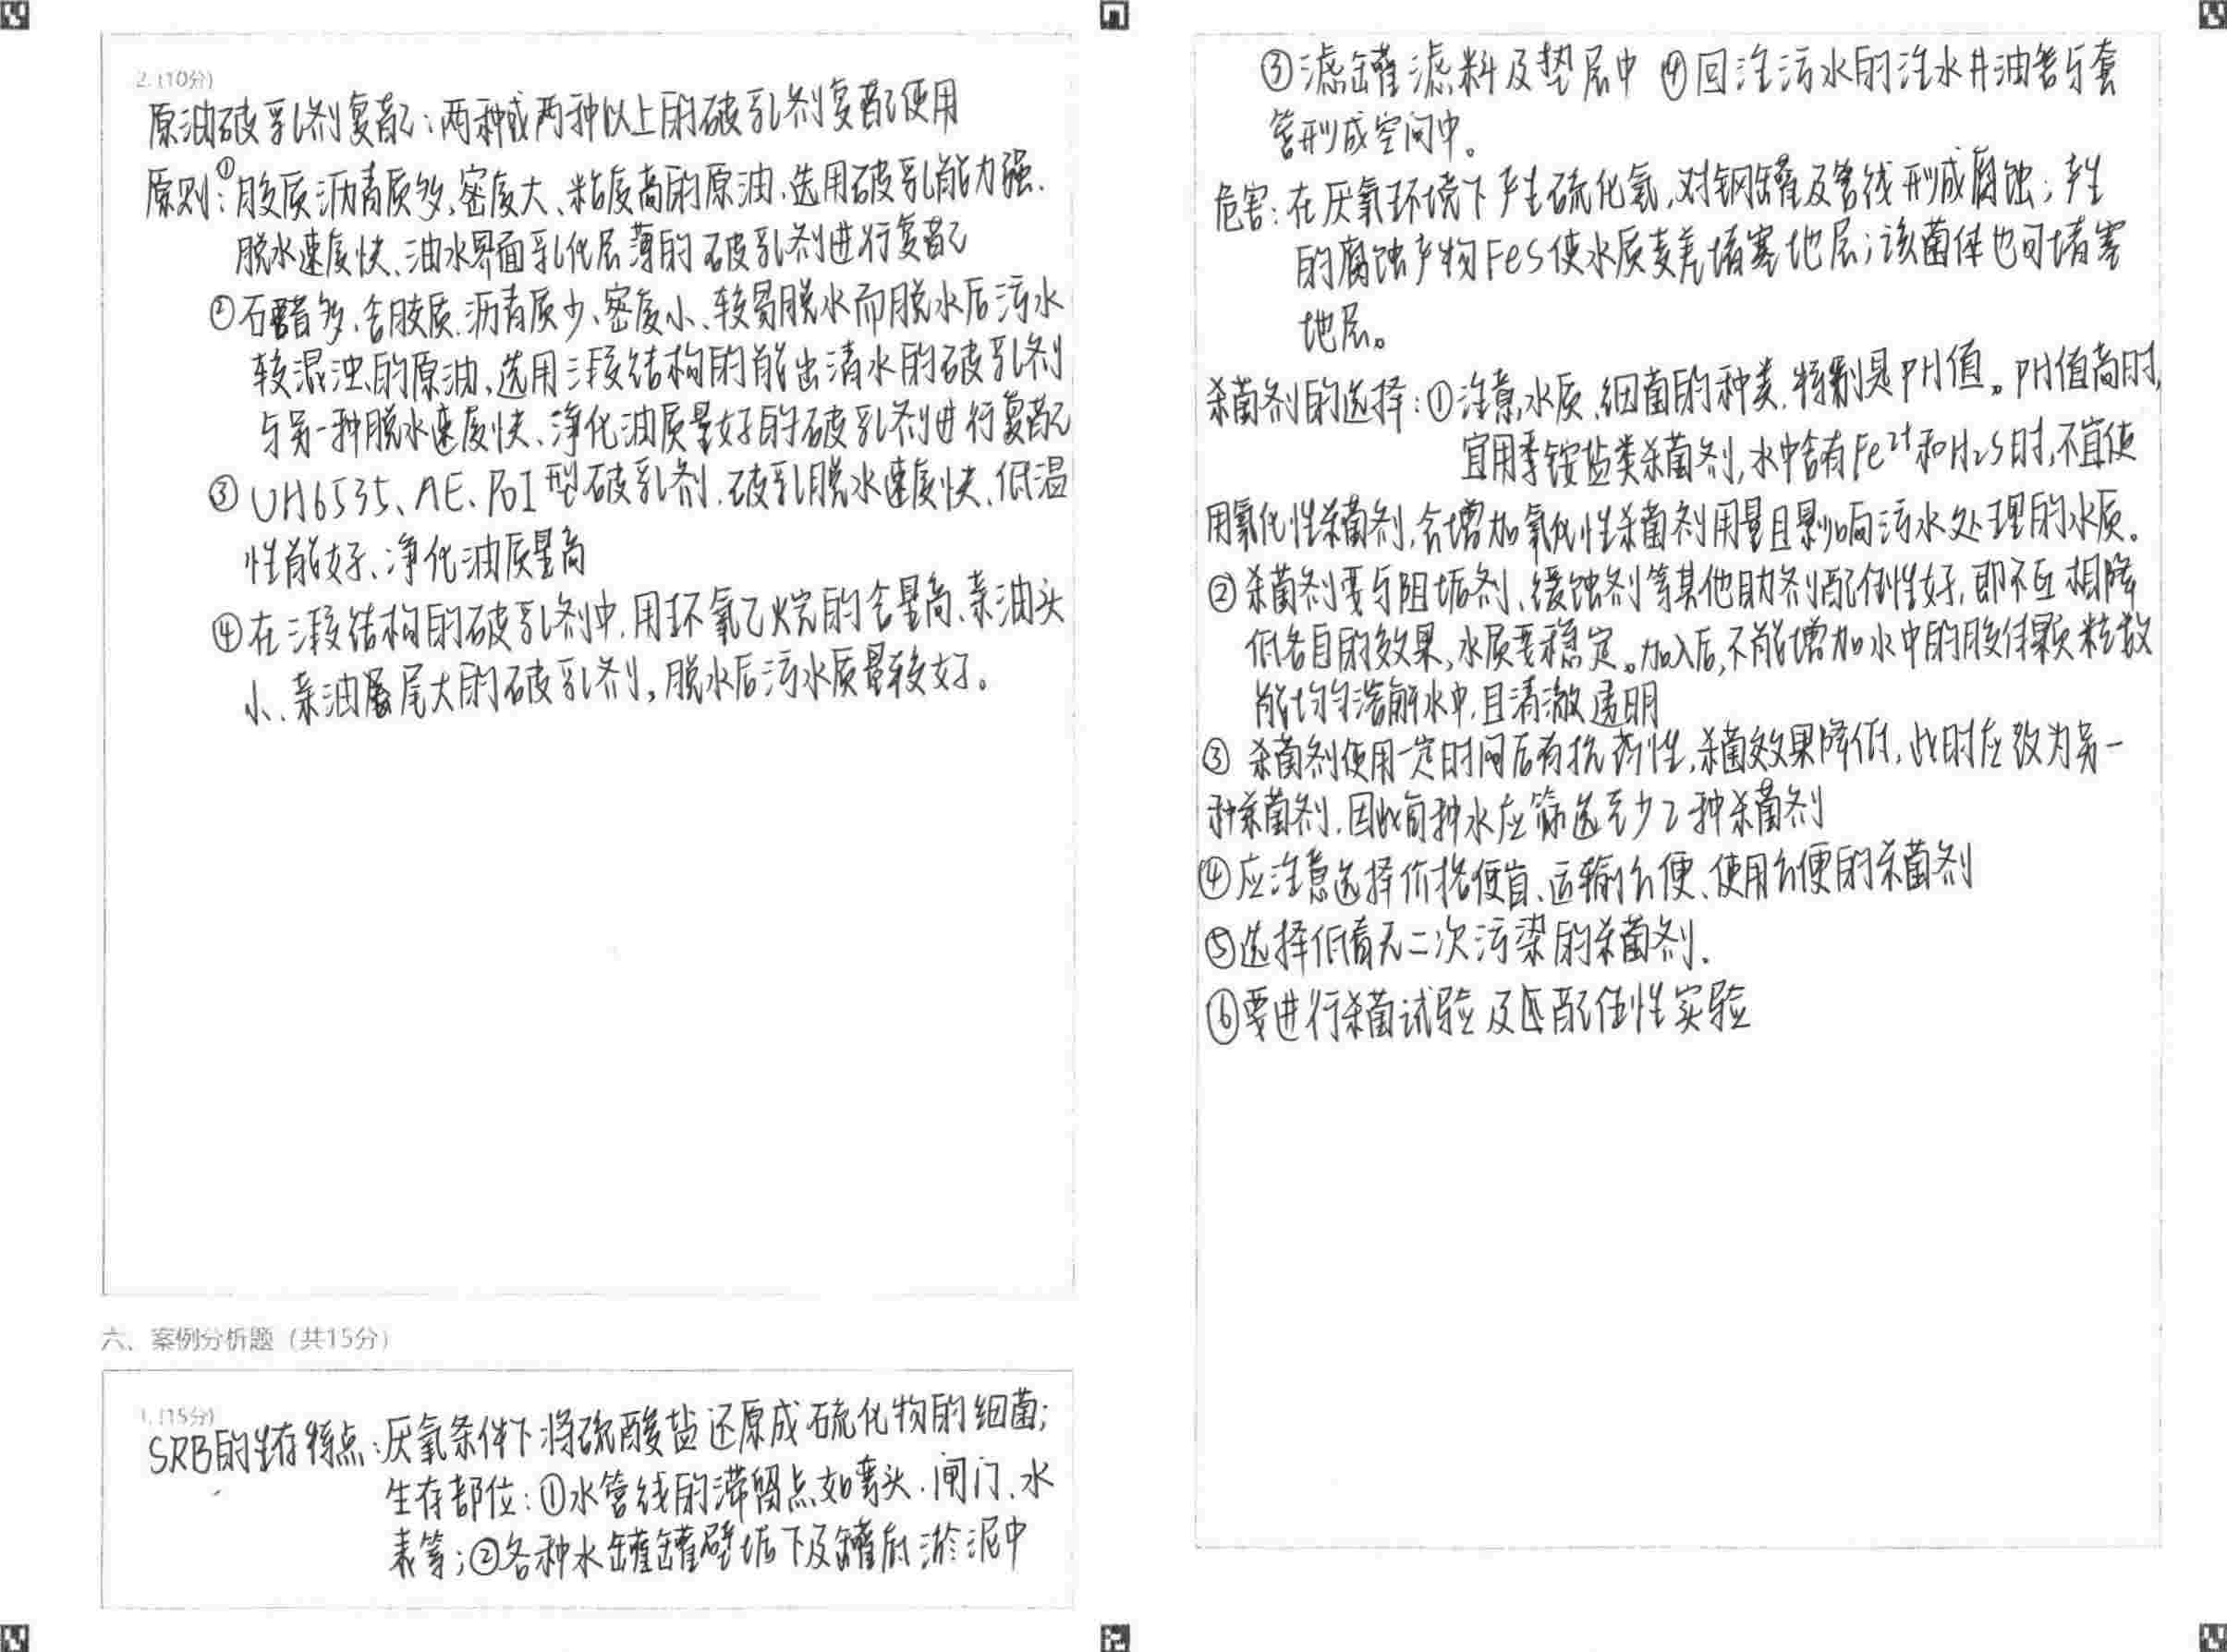 2. (10分)
原油破乳剂复配：两种或两种以上的破乳剂复配使用
原则：①胶质沥青质多、密度大、粘度高的原油，选用破乳能力强、
脱水速度快、油水界面乳化层薄的破乳剂进行复配
②石蜡多、含胶质、沥青质少、密度小、较易脱水而脱水后污水
较混浊的原油、选用三段结构的能出清水的破乳剂
与另一种脱水速度快、净化油质量好的破乳剂进行复配
③ UH6535、AE、POI型破乳剂，破乳脱水速度快、低温
性能好、净化油质量高
④在三段结构的破乳剂中，用环氧乙烷的含量高、亲油头
小、亲油尾大的破乳剂，脱水后污水质量较好。
六、案例分析题（共15分）
1. (15分)
SRB的生存特点：厌氧条件下将硫酸盐还原成硫化物的细菌；
生存部位：①水管线的滞留点如弯头、闸门、水
表等；②各种水罐罐壁垢下及罐底淤泥中
③滤罐滤料及垫层中 ④回注污水的注水井油管与套
管形成空间中。
危害：在厌氧环境下产生硫化氢，对钢罐及管线形成腐蚀；产生
的腐蚀产物FeS使水质变差堵塞地层；该菌体也可堵塞
地层。
杀菌剂的选择：①注意水质、细菌的种类，特别是PH值。PH值高时，
宜用季铵盐类杀菌剂，水中含有Fe²⁺和H₂S时，不宜使
用氧化性杀菌剂，会增加氧化性杀菌剂用量且影响污水处理的水质。
②杀菌剂要与阻垢剂、缓蚀剂等其他助剂配伍性好，即不互相降
低各自的效果，水质要稳定。加入后，不能增加水中的胶体颗粒数
能均匀溶解水中，且清澈透明
③ 杀菌剂使用一定时间后有抗药性，杀菌效果降低，此时应改为另一
种杀菌剂，因此每种水应筛选至少2种杀菌剂
④应注意选择价格便宜、运输方便、使用方便的杀菌剂
⑤选择低毒无二次污染的杀菌剂.
⑥要进行杀菌试验及匹配伍性实验